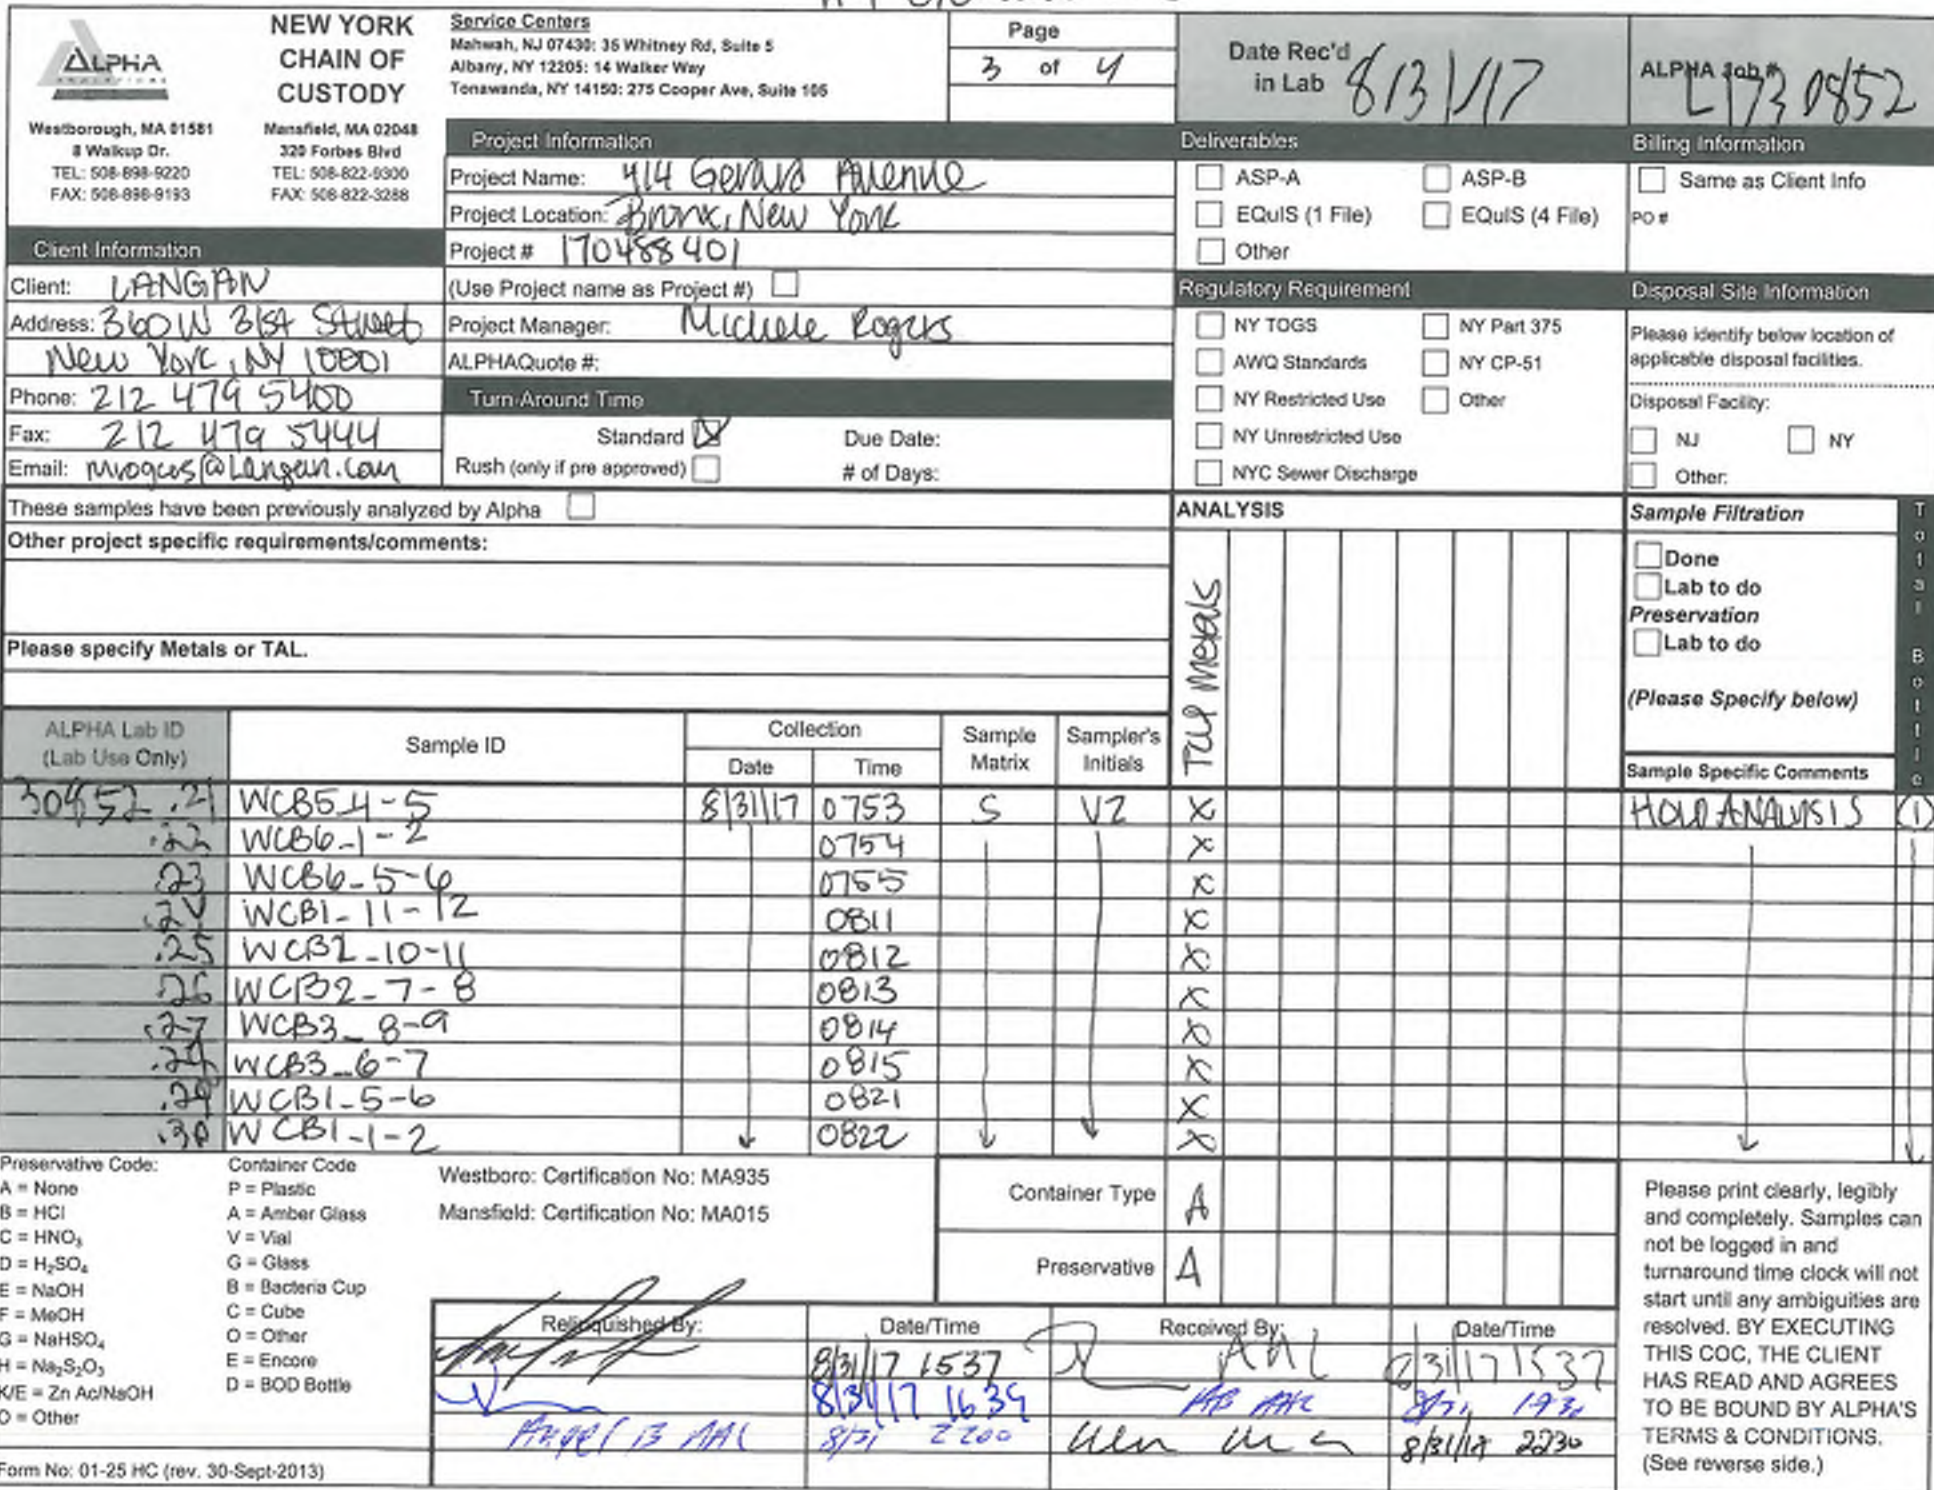 ALPHA
ANALYTICAL
NEW YORK
CHAIN OF
CUSTODY
Westborough, MA 01581
8 Walkup Dr.
TEL: 508-898-9220
FAX: 508-898-9193
Mansfield, MA 02048
320 Forbes Blvd
TEL: 508-822-9300
FAX: 508-822-3288
Service Centers
Mahwah, NJ 07430: 35 Whitney Rd, Suite 5
Albany, NY 12205: 14 Walker Way
Tonawanda, NY 14150: 275 Cooper Ave, Suite 105
Page
3 of 4
Date Rec'd
in Lab 8/31/17
ALPHA Job #
L1730852
Client Information
Client: LANGAN
Address: 360 W 31st Street
New York, NY 10001
Phone: 212 479 5400
Fax: 212 479 5444
Email: mrogers@Langan.com
Project Information
Project Name: 414 Gerard Avenue
Project Location: Bronx, New York
Project # 170488401
(Use Project name as Project #)
Project Manager: Michele Rogers
ALPHAQuote #:
Turn-Around Time
Standard X Due Date:
Rush (only if pre approved) # of Days:
Deliverables
ASP-A ASP-B
EQuIS (1 File) EQuIS (4 File)
Other
Regulatory Requirement
NY TOGS NY Part 375
AWQ Standards NY CP-51
NY Restricted Use Other
NY Unrestricted Use
NYC Sewer Discharge
Billing Information
Same as Client Info
PO #
Disposal Site Information
Please identify below location of
applicable disposal facilities.
Disposal Facility:
NJ NY
Other:
These samples have been previously analyzed by Alpha
Other project specific requirements/comments:
Please specify Metals or TAL.
ANALYSIS
Metals
Sample Filtration
Done
Lab to do
Preservation
Lab to do
(Please Specify below)
Total Bottle
ALPHA Lab ID
(Lab Use Only)
Sample ID
Collection
Date Time
Sample
Matrix
Sampler's
Initials
Sample Specific Comments
30852 .21 WCB5_4-5 8/31/17 0753 S VZ X HOLD ANALYSIS (1)
.22 WCB6_1-2 0754 X
.23 WCB6_5-6 0755 X
.24 WCB1_11-12 0811 X
.25 WCB2_10-11 0812 X
.26 WCB2_7-8 0813 X
.27 WCB3_8-9 0814 X
.28 WCB3_6-7 0815 X
.29 WCB1_5-6 0821 X
.30 WCB1_1-2 0822 X
Preservative Code:
A = None
B = HCl
C = HNO₃
D = H₂SO₄
E = NaOH
F = MeOH
G = NaHSO₄
H = Na₂S₂O₃
K/E = Zn Ac/NaOH
O = Other
Container Code
P = Plastic
A = Amber Glass
V = Vial
G = Glass
B = Bacteria Cup
C = Cube
O = Other
E = Encore
D = BOD Bottle
Westboro: Certification No: MA935
Mansfield: Certification No: MA015
Container Type A
Preservative A
Relinquished By: Date/Time Received By: Date/Time
8/31/17 1537 AAL 8/31/17 1537
8/31/17 1639 AB AAL 8/31
Angel B AAL 8/31 2200 8/31/17 2230
Please print clearly, legibly
and completely. Samples can
not be logged in and
turnaround time clock will not
start until any ambiguities are
resolved. BY EXECUTING
THIS COC, THE CLIENT
HAS READ AND AGREES
TO BE BOUND BY ALPHA'S
TERMS & CONDITIONS.
(See reverse side.)
Form No: 01-25 HC (rev. 30-Sept-2013)